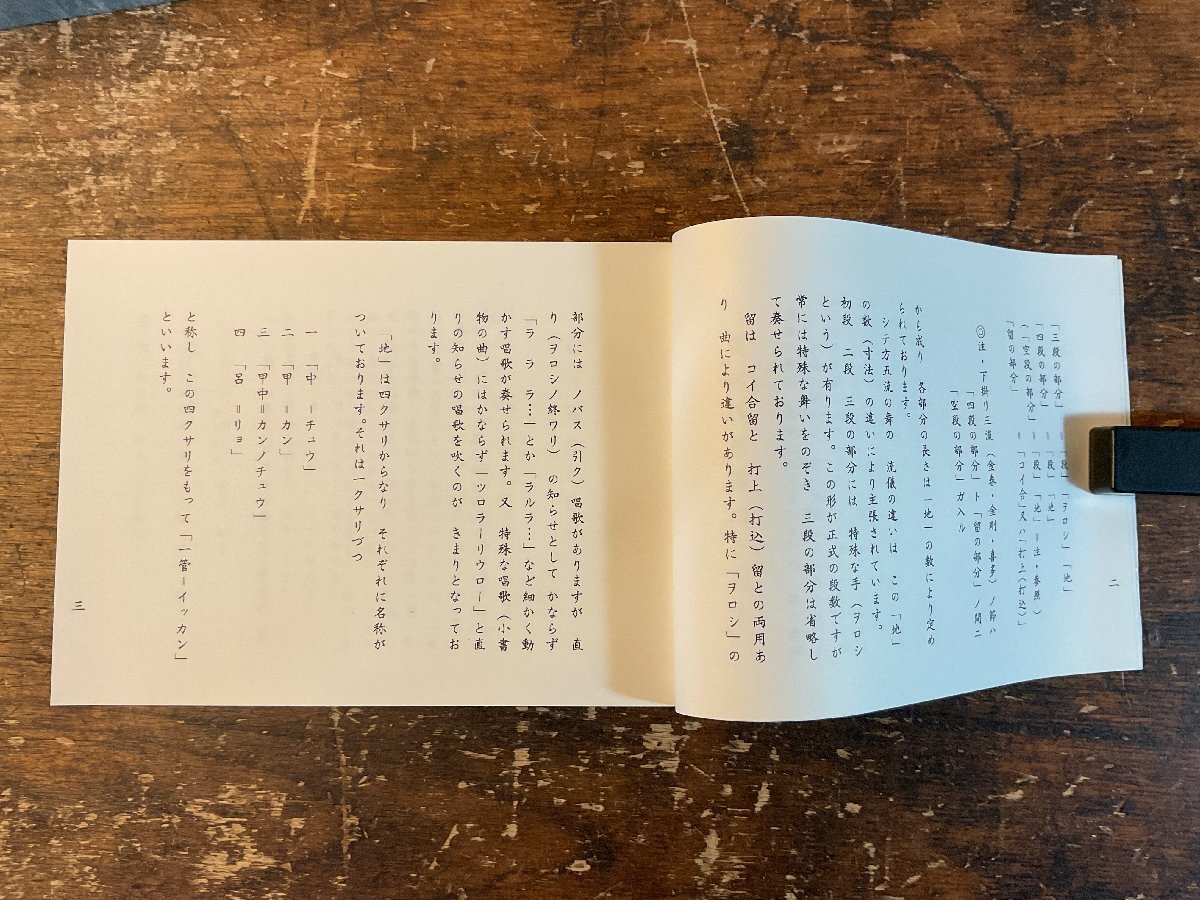 二
「三段の部分」 = 段」「ヲロシ」「地」
「四段の部分」 = 段」「地」
(「空段の部分」 = 「段」「地」ー注・参照)
「留の部分」 = 「コイ合」又ハ「打上(打込)」
注・下掛り三流(金春・金剛・喜多)ノ節ハ
「四段の部分」ト「留の部分」ノ間ニ
「空段の部分」ガ入ル
から成り 各部分の長さは「地」の数により定め
られております。
シテ方五流の舞の 流儀の違いは この「地」
の数(寸法)の違いにより主張されています。
初段 二段 三段の部分には 特殊な手(ヲロシ
という)が有ります。この形が正式の段数ですが
常には特殊な舞いをのぞき 三段の部分は省略し
て奏せられております。
留は コイ合留と 打上(打込)留との両用あ
り 曲により違いがあります。特に「ヲロシ」の
部分には ノバス(引ク)唱歌がありますが 直
り(ヲロシノ終ワリ) の知らせとして かならず
「ラ ラ ラ…」とか「ラルラ…」など細かく動
かす唱歌が奏せられます。又 特殊な唱歌(小書
物の曲)にはかならず「ツロラーリウロー」と直
りの知らせの唱歌を吹くのが きまりとなってお
ります。
「地」は四クサリからなり それぞれに名称が
ついております。それは一クサリづつ
一 「中 =チュウ」
二 「甲 =カン」
三 「甲中=カンノチュウ」
四 「呂 =リョ」
と称し この四クサリをもって「一管=イッカン」
といいます。
三